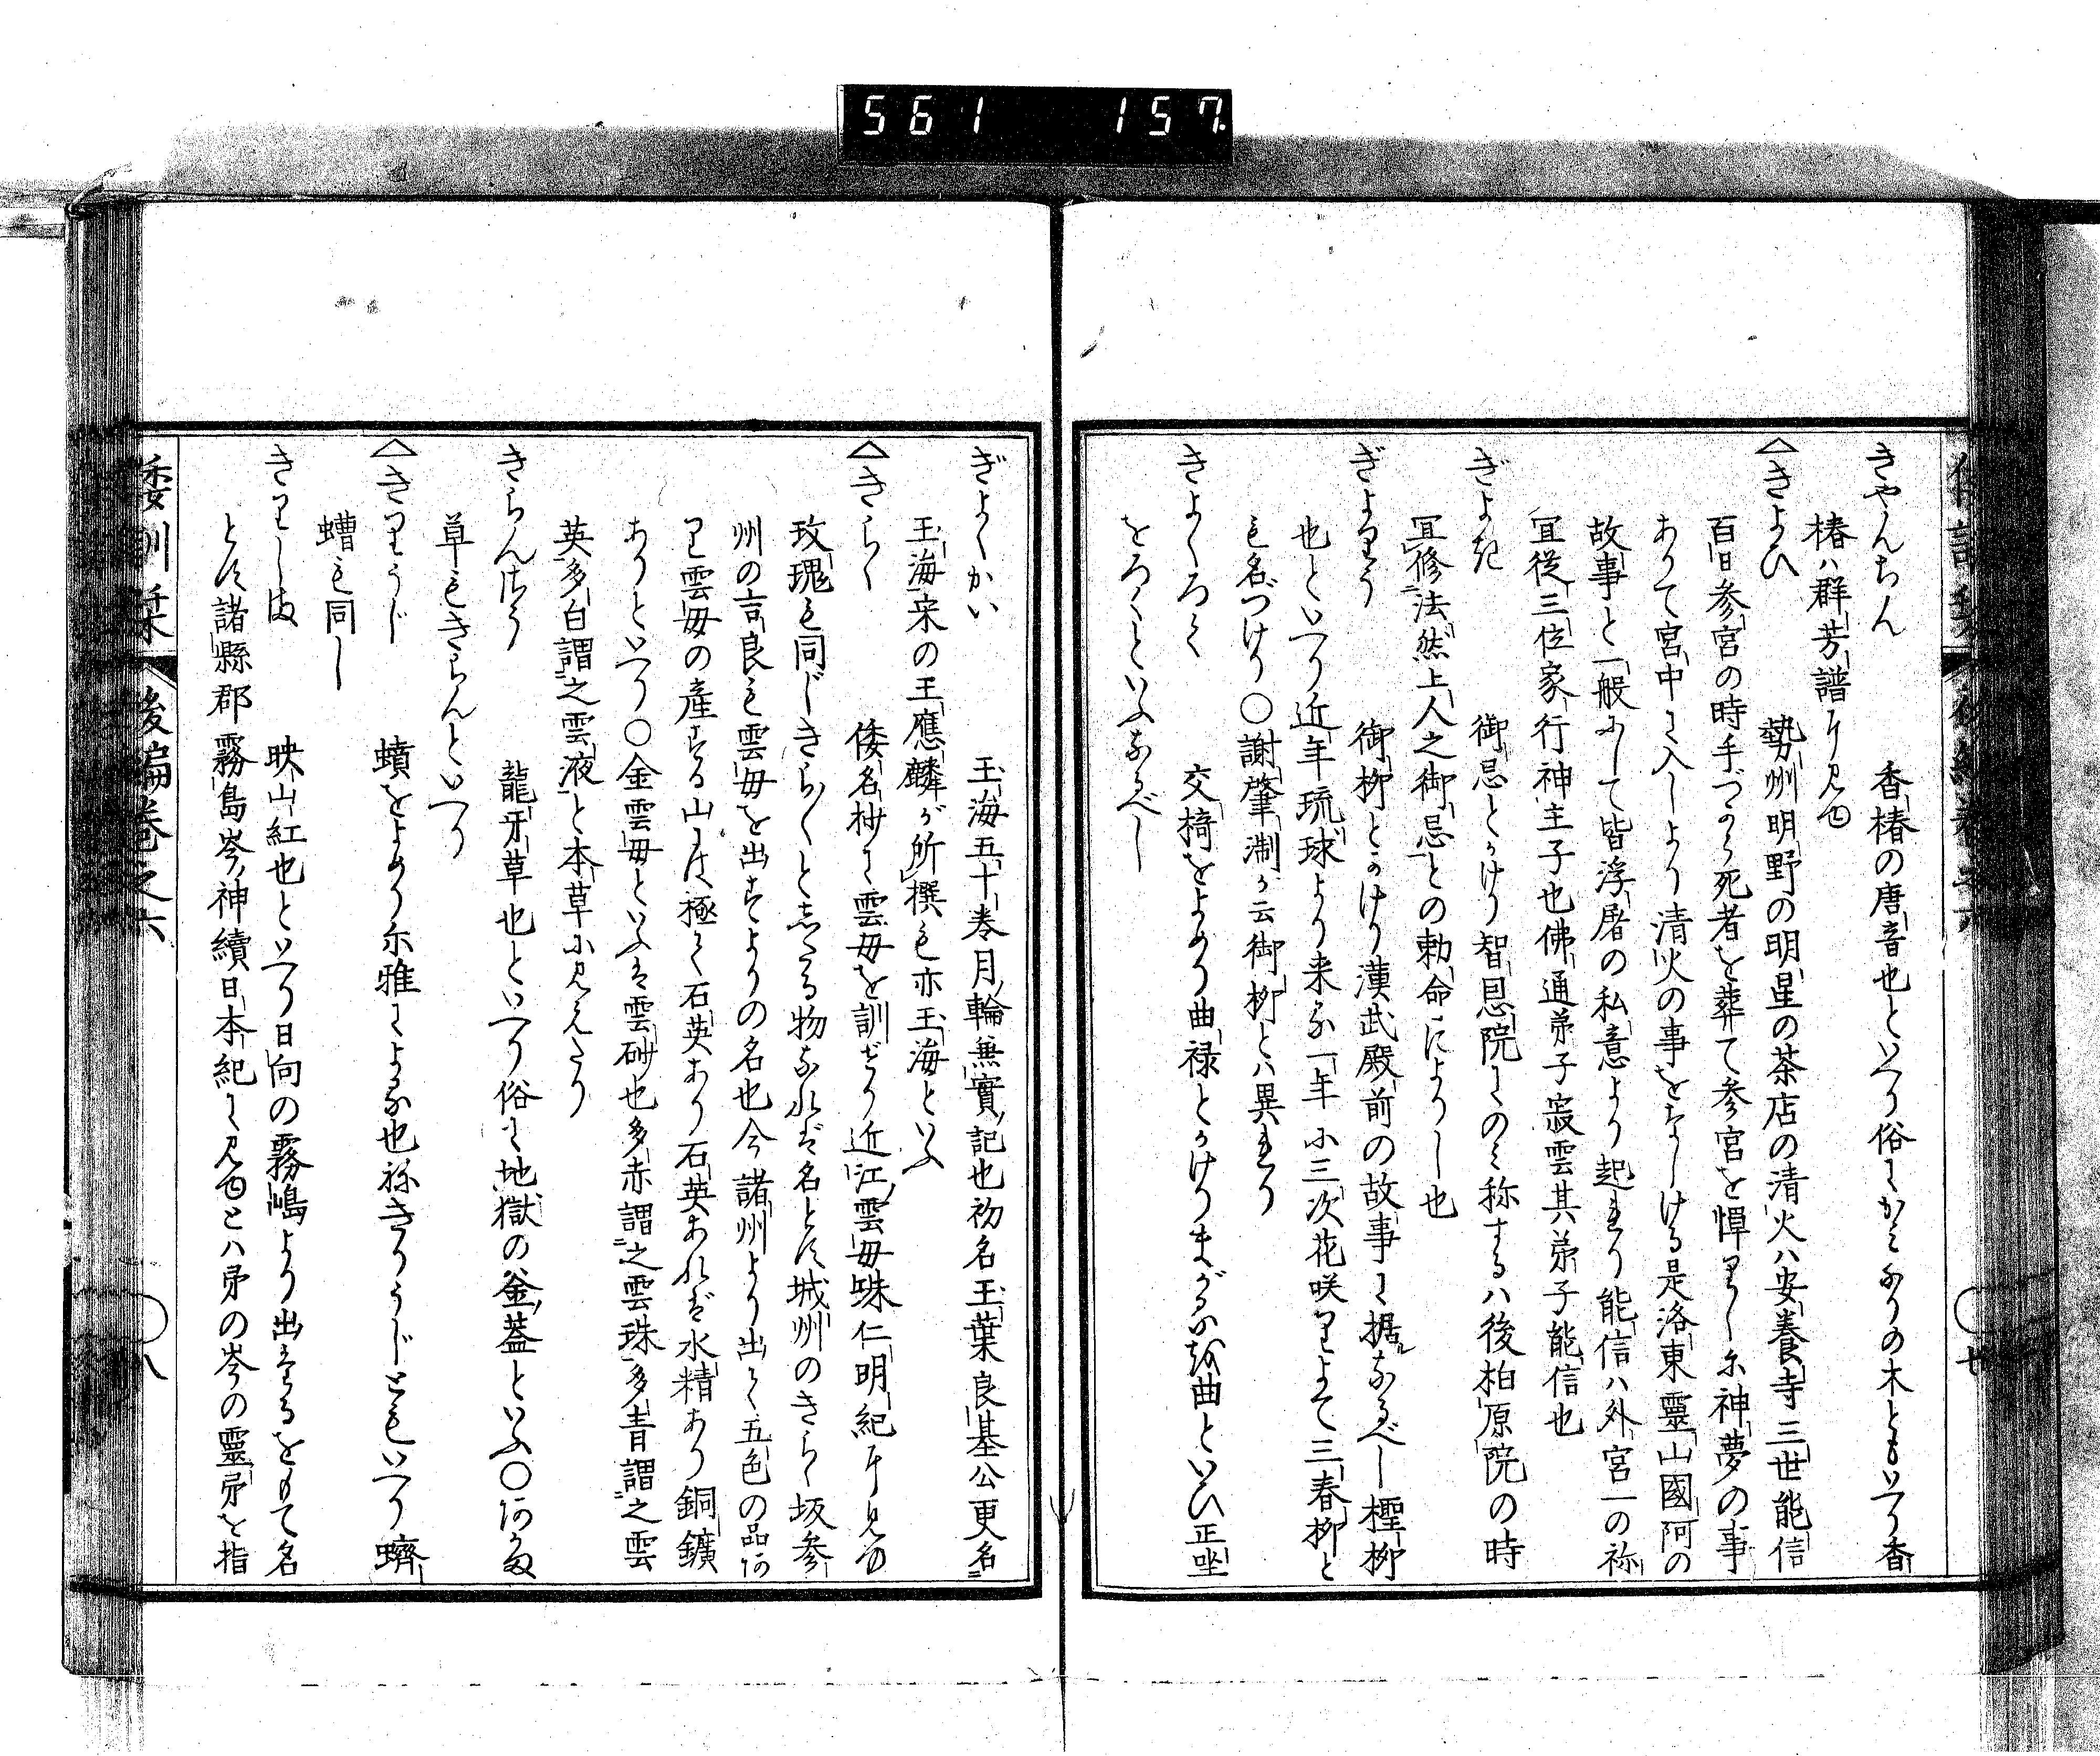 561 157
きやんちん 香椿の唐音也といへり俗にかみありの木ともいへり香
椿ハ群芳譜に見ゆ
△きよひ 勢州明野の明星の茶店の清火ハ安養寺三世能信
百日参宮の時手づから死者を葬て参宮を憚りしに神夢の事
ありて宮中に入しより清火の事をよしける是洛東靈山國阿の
故事と一般にして皆浮屠の私意より起れり能信ハ外宮一の祢
冝従三位家行神主子也佛通弟子寂雲其弟子能信也
ぎよき 御忌とかけり智恩院にのミ称するハ後柏原院の時
冝修法然上人之御忌との勅命によりし也
ぎよりう 御柳とかけり漢武殿前の故事に据なるべし檉柳
也といへり近年琉球より来る一年に三次花咲りよて三春柳と
も名づけり〇謝肇淛か云御柳とハ異れり
きよくろく 交椅をよめり曲禄とかけりまがる故曲といひ正坐
をろくといふなるべし
ぎよくかい 玉海五十巻月輪無實記也初名玉葉良基公更名
玉海宋の王應麟が所撰も亦玉海といふ
△きらゝ 倭名抄に雲母を訓ぜり近江雲母蛛仁明紀に見ゆ
玫瑰も同じきら〱としたる物なれば名とす城州のきらゝ坂参
州の吉良も雲母を出すよりの名也今諸州より出て五色の品あ
り雲母の産する山にハ極て石英あり石英あれば水精あり銅鑛
ありといへり〇金雲母といふは雲砂也多赤謂之雲珠多青謂之雲
英多白謂之雲液と本草に見えたり
きらんさう 龍牙草也といへり俗に地獄の釜蓋といふ〇
草もきらんといへり
△きりうじ 蠐をよめり尓雅によれる也祢きりうじともいへり蠐
螬も同し
きりしま 映山紅也といへり日向の霧嶋より出たるをもて名
とす諸縣郡霧島岑神續日本紀に見ゆとハ嶋の岑の靈嶋を指
倭訓栞 後編巻之六 八